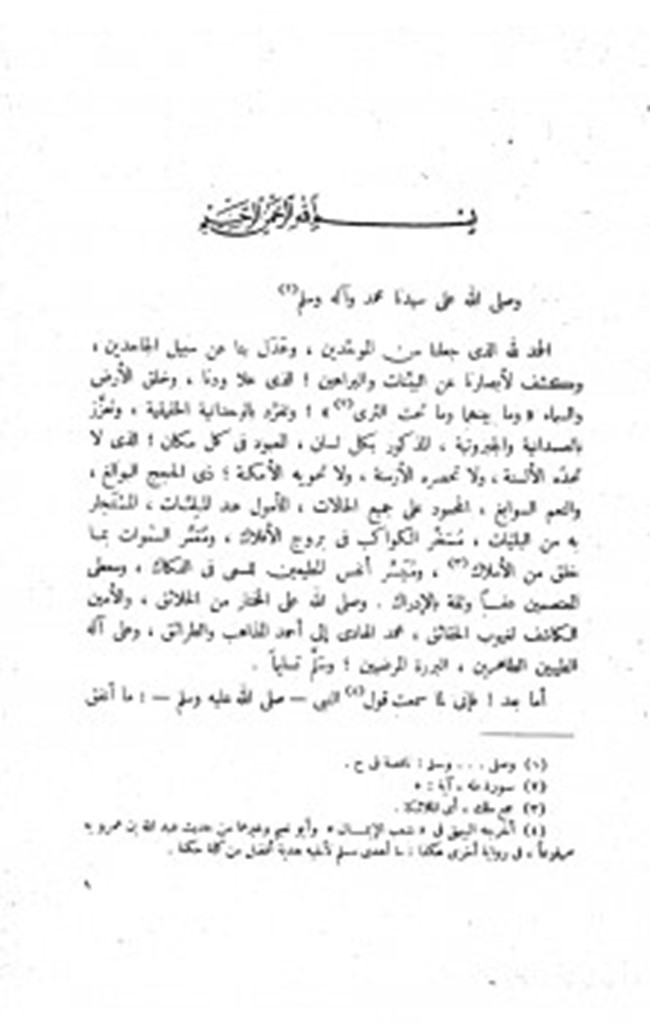 بسم الله الرحمن الرحيم
وصلى الله على سيدنا محمد وآله وسلم (١)
الحمد لله الذى جعلنا من الموحدين ، وعدل بنا عن سبيل الجاحدين ،
وكشف لأبصارنا عن البينات والبراهين ؛ الذى علا ودنا ، وخلق الأرض
والسماء « وما بينهما وما تحت الثرى (٢) » ؛ وتفرد بالوحدانية الحقيقية ، وتعزز
بالصمدانية والجبروتية ، المذكور بكل لسان ، المعبود فى كل مكان ؛ الذى لا
تحده الألسنة ، ولا تحصره الأزمنة ، ولا تحويه الأمكنة ؛ ذى الحجج البوالغ ،
والنعم السوابغ ، المحمود على جميع الحالات ، المأمول عند الملمات ، المستجار
به من البليات ، مسخر الكواكب فى بروج الأفلاك ، ومعمر السموات بما
خلق من الأملاك (٣) ، وميسر أنفس المطيعين لتسعى فى الفكاك ، ومعطى
المعتصمين وثقة بالإدراك . وصلى الله على المختار من الخلائق ، والأمين
الكاشف لغيوب الحقائق ، محمد الهادى إلى أحمد المذاهب والطرائق ، وعلى آله
الطيبين الطاهرين ، البررة المرضيين ؛ وسلم تسليماً .
أما بعد ؛ فإنى لما سمعت قول (٤) النبى — صلى الله عليه وسلم — : ما أنفق
(١) وصلى . . . وسلم : ناقصة فى ح .
(٢) سورة طه ، آية : ٥
(٣) جمع ملك ، أى الملائكة .
(٤) أخرجه البيهقى فى « شعب الإيمان » وأبو نعيم وغيرهما من حديث عبد الله بن عمرو به
مرفوعاً ، فى رواية أخرى هكذا : ما أهدى مسلم لأخيه هدية أفضل من كلمة حكمة .